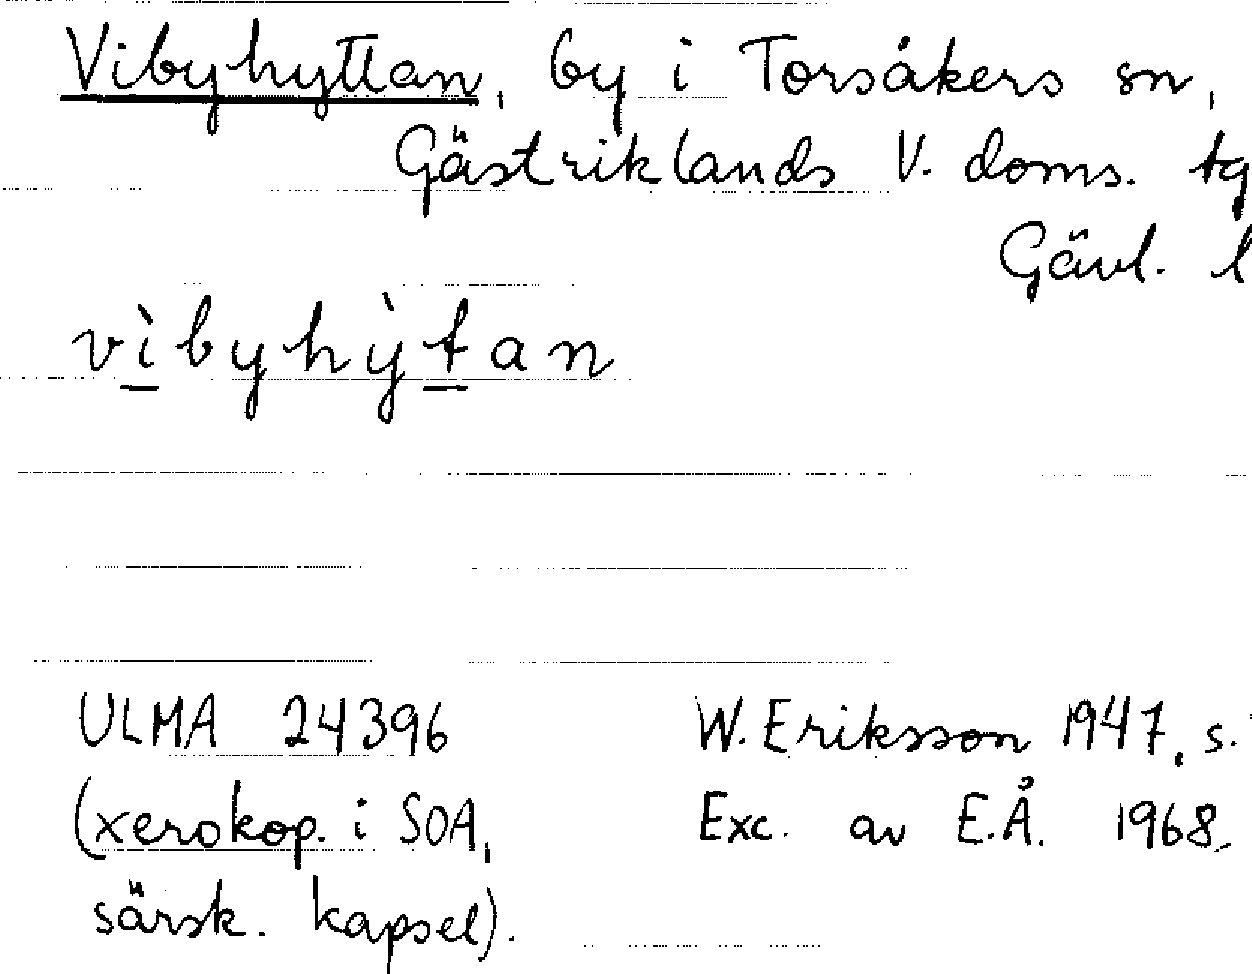 Vibyhyttan, by i Torsåkers sn,
Gästriklands V. doms. tg
Gävl. l
vìbyhỳtan
ULMA 24396 W. Eriksson 1947, s.
(xerokop. i SOA, Exc. av E.Å. 1968.
särsk. kapsel).